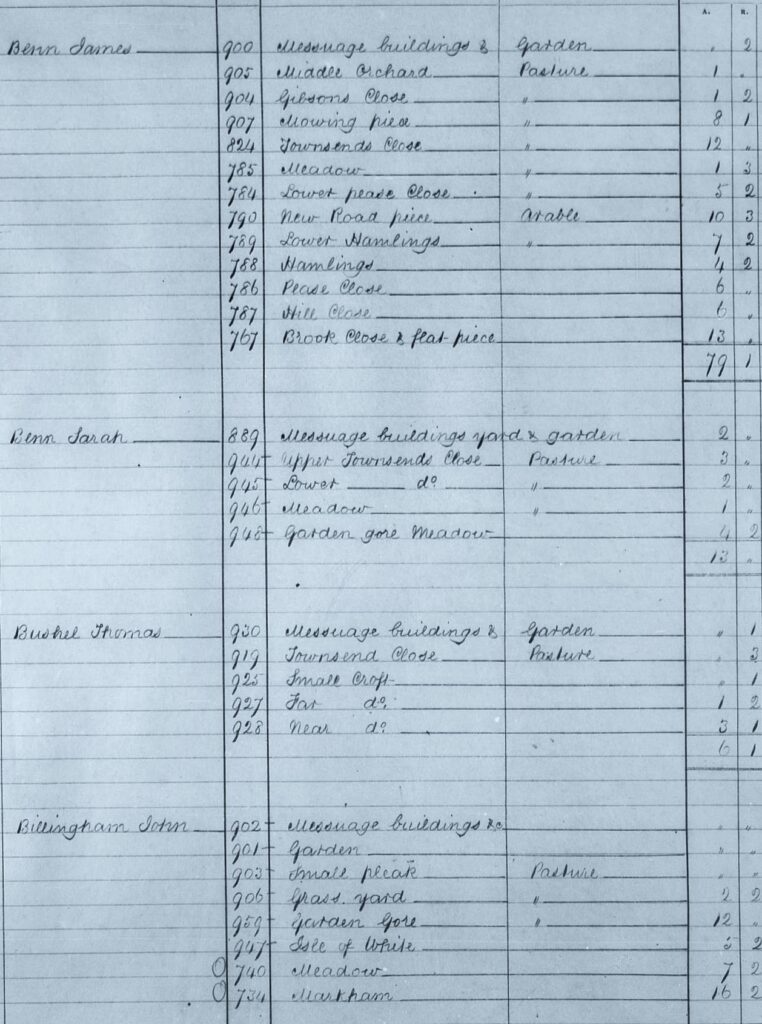 A. R.
Benn James 900 Messuage buildings & Garden „ 2
905 Middle Orchard Pasture 1 „
904 Gibsons Close „ 1 2
907 Mowing piece „ 8 1
824 Townsends Close „ 12 „
785 Meadow „ 1 3
784 Lower pease Close „ 5 2
790 New Road piece Arable 10 3
789 Lower Hamlings „ 7 2
788 Hamlings 4 2
786 Pease Close 6 „
787 Hill Close 6 „
767 Brook Close & flat piece 13 „
79 1
Benn Sarah 889 Messuage buildings yard & garden 2 „
944 Upper Townsends Close Pasture 3 „
945 Lower do „ 2 „
946 Meadow „ 1 „
948 Garden gore Meadow 4 2
13 „
Bushel Thomas 930 Messuage buildings & Garden „ 1
919 Townsend Close Pasture „ 3
925 Small Croft „ 1
927 Far do 1 2
928 Near do 3 1
6 1
Billingham John 902 Messuage buildings &c „ „
901 Garden „ „
903 Small pleak Pasture „ „
906 Grass yard „ 2 2
959 Garden Gore „ 12 „
947 Isle of White 2
740 Meadow 7 2
734 Markham 16 2